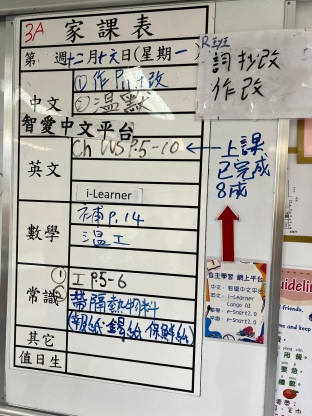 3A
家課表
第 週十二月十六日(星期一)
R班
詞抄改
作改
中文
①作P.1改
②溫默
智愛中文平台
英文
Ch WS P.5-10 ← 上課已完成8成
i-Learner
數學
補P.14
溫工
常識
①工P.5-6
帶隔熱物料
(報紙、錫紙、保鮮紙)
其它
值日生
自主學習 網上平台
中文：智愛中文平台
英文：i-Learner